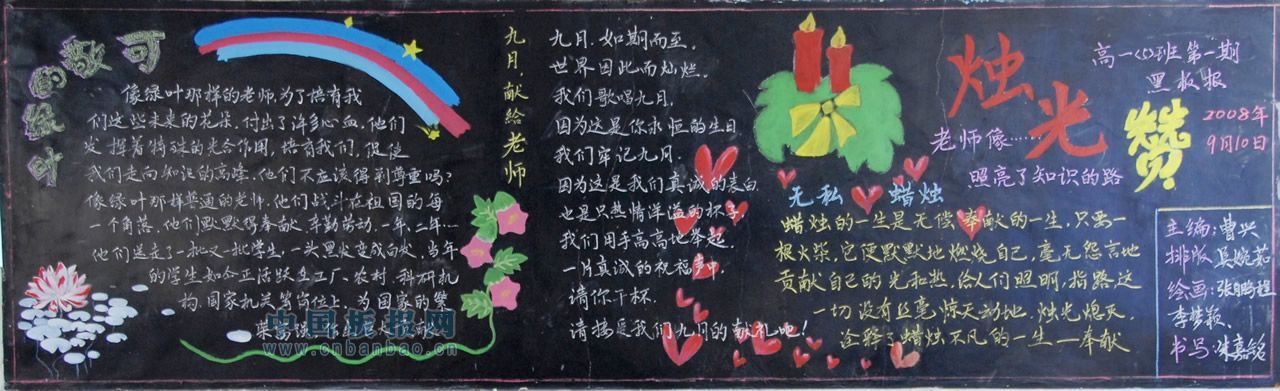 可敬的绿叶
像绿叶那样的老师,为了培育我
们这些未来的花朵,付出了许多心血,他们
发挥着特殊的光合作用,培育我们,促使
我们走向知识的高峰,他们不应该得到尊重吗?
像绿叶那样普通的老师,他们战斗在祖国的每
一个角落,他们默默得奉献,辛勤劳动,一年,二年…
他们送走了一批又一批学生,一头黑发变成白发,当年
的学生如今正活跃在工厂、农村、科研机
构,国家机关等岗位上,为国家的繁
荣富强,
中国板报网
www.cnbanbao.cn
九月,献给老师
九月,如期而至,
世界因此而灿烂,
我们歌唱九月,
因为这是你永恒的生日
我们牢记九月,
因为这是我们真诚的表白
也是只热情洋溢的杯子,
我们用手高高地举起,
一片真诚的祝福声中,
请你干杯,
请接受我们九月的献礼吧!
烛光赞
高一(5)班第一期
黑板报
2008年
9月10日
老师像……
照亮了知识的路
无私 蜡烛
蜡烛的一生是无偿奉献的一生,只要一
根火柴,它便默默地燃烧自己,毫无怨言地
贡献自己的光和热,给人们照明,指路,这
一切没有丝毫惊天动地,烛光熄灭,
诠释了蜡烛不凡的一生—奉献
主编:曹兴
排版:吴婉茹
绘画:张鹏程
李梦颖
书写:朱嘉铭